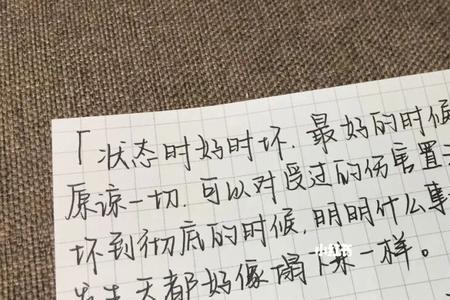 「状态时好时坏,最好的时候
原谅一切,可以对受过的伤害置
坏到彻底的时候,明明什么事
天都好像塌下来一样。
小红书